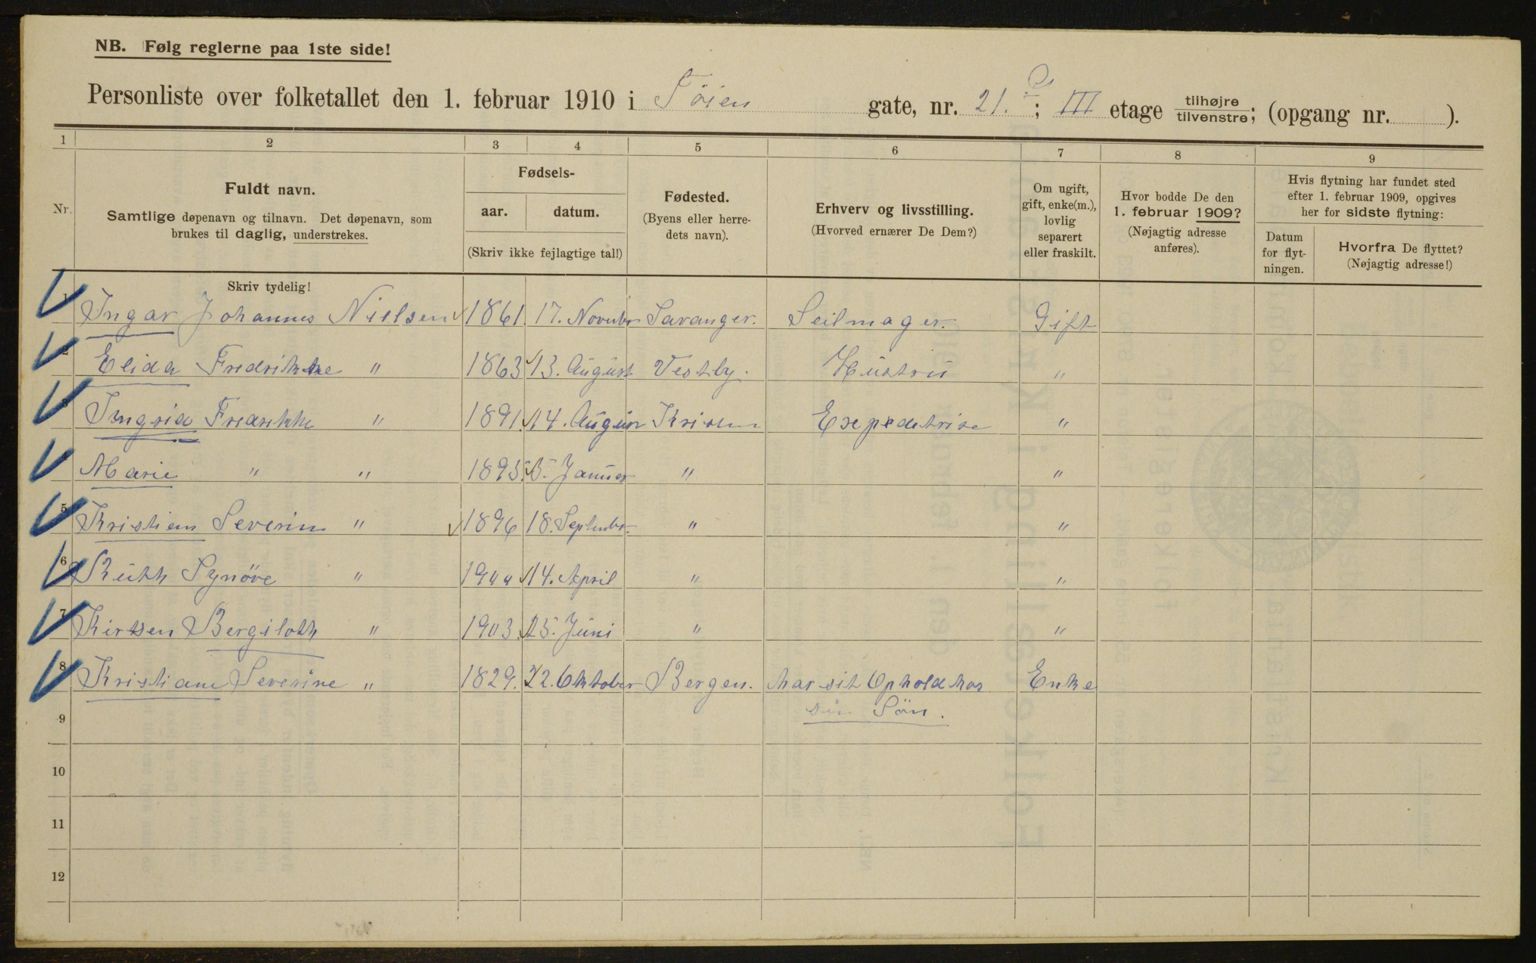 NB. Følg reglerne paa 1ste side!
Personliste over folketallet den 1. februar 1910 i Töien gate, nr. 21.; III etage tilhøjre tilvenstre; (opgang nr. ).
1 2 3 4 5 6 7 8 9
Nr. Fuldt navn. Samtlige døpenavn og tilnavn. Det døpenavn, som brukes til daglig, understrekes.
Fødsels- aar. datum. (Skriv ikke fejlagtige tal!)
Fødested. (Byens eller herredets navn).
Erhverv og livsstilling. (Hvorved ernærer De Dem?)
Om ugift, gift, enke(m.), lovlig separert eller fraskilt.
Hvor bodde De den 1. februar 1909? (Nøjagtig adresse anføres).
Hvis flytning har fundet sted efter 1. februar 1909, opgives her for sidste flytning:
Datum for flytningen. Hvorfra De flyttet? (Nøjagtig adresse!)
Skriv tydelig!
1 Ingar Johannes Nielsen 1861. 17. Novmbr Savanger. Seilmager. Gift
2 Elida Fredrikke " 1863 13. August Vestby. Hustru "
3 Ingrid Fredrikke " 1891. 14. August "
Marie " " 1895. 5. Januar " "
5 Severin " 1896 18. Septmbr. " "
6 Ruth Synöve " 14. April " "
7 Bergiloth " 1903. 25. Juni " "
8 Kristiane Severine " 1829. 22. Oktober Bergen. har sit Ophold hos Enke
sin Sön.
9
10
11
12